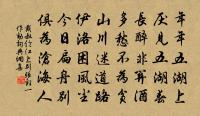 年年五湖上
厭見五湖春
長醉非關酒
多愁不為貧
山川迷道路
伊洛困風塵
今日扁舟別
俱為滄海人
戴叔倫江上別張勸